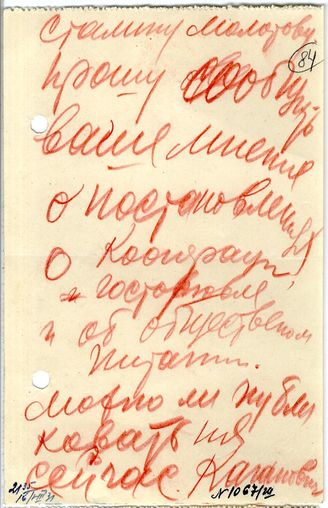 Сталину Молотову
84
прошу сообщить
ваше мнение
о постановлениях
о кооперации
и госторговле
и об общественом
питании.
можно ли публи
ковать их
сейчас. Каганович
2135
16/VIII 31
№1067/ш